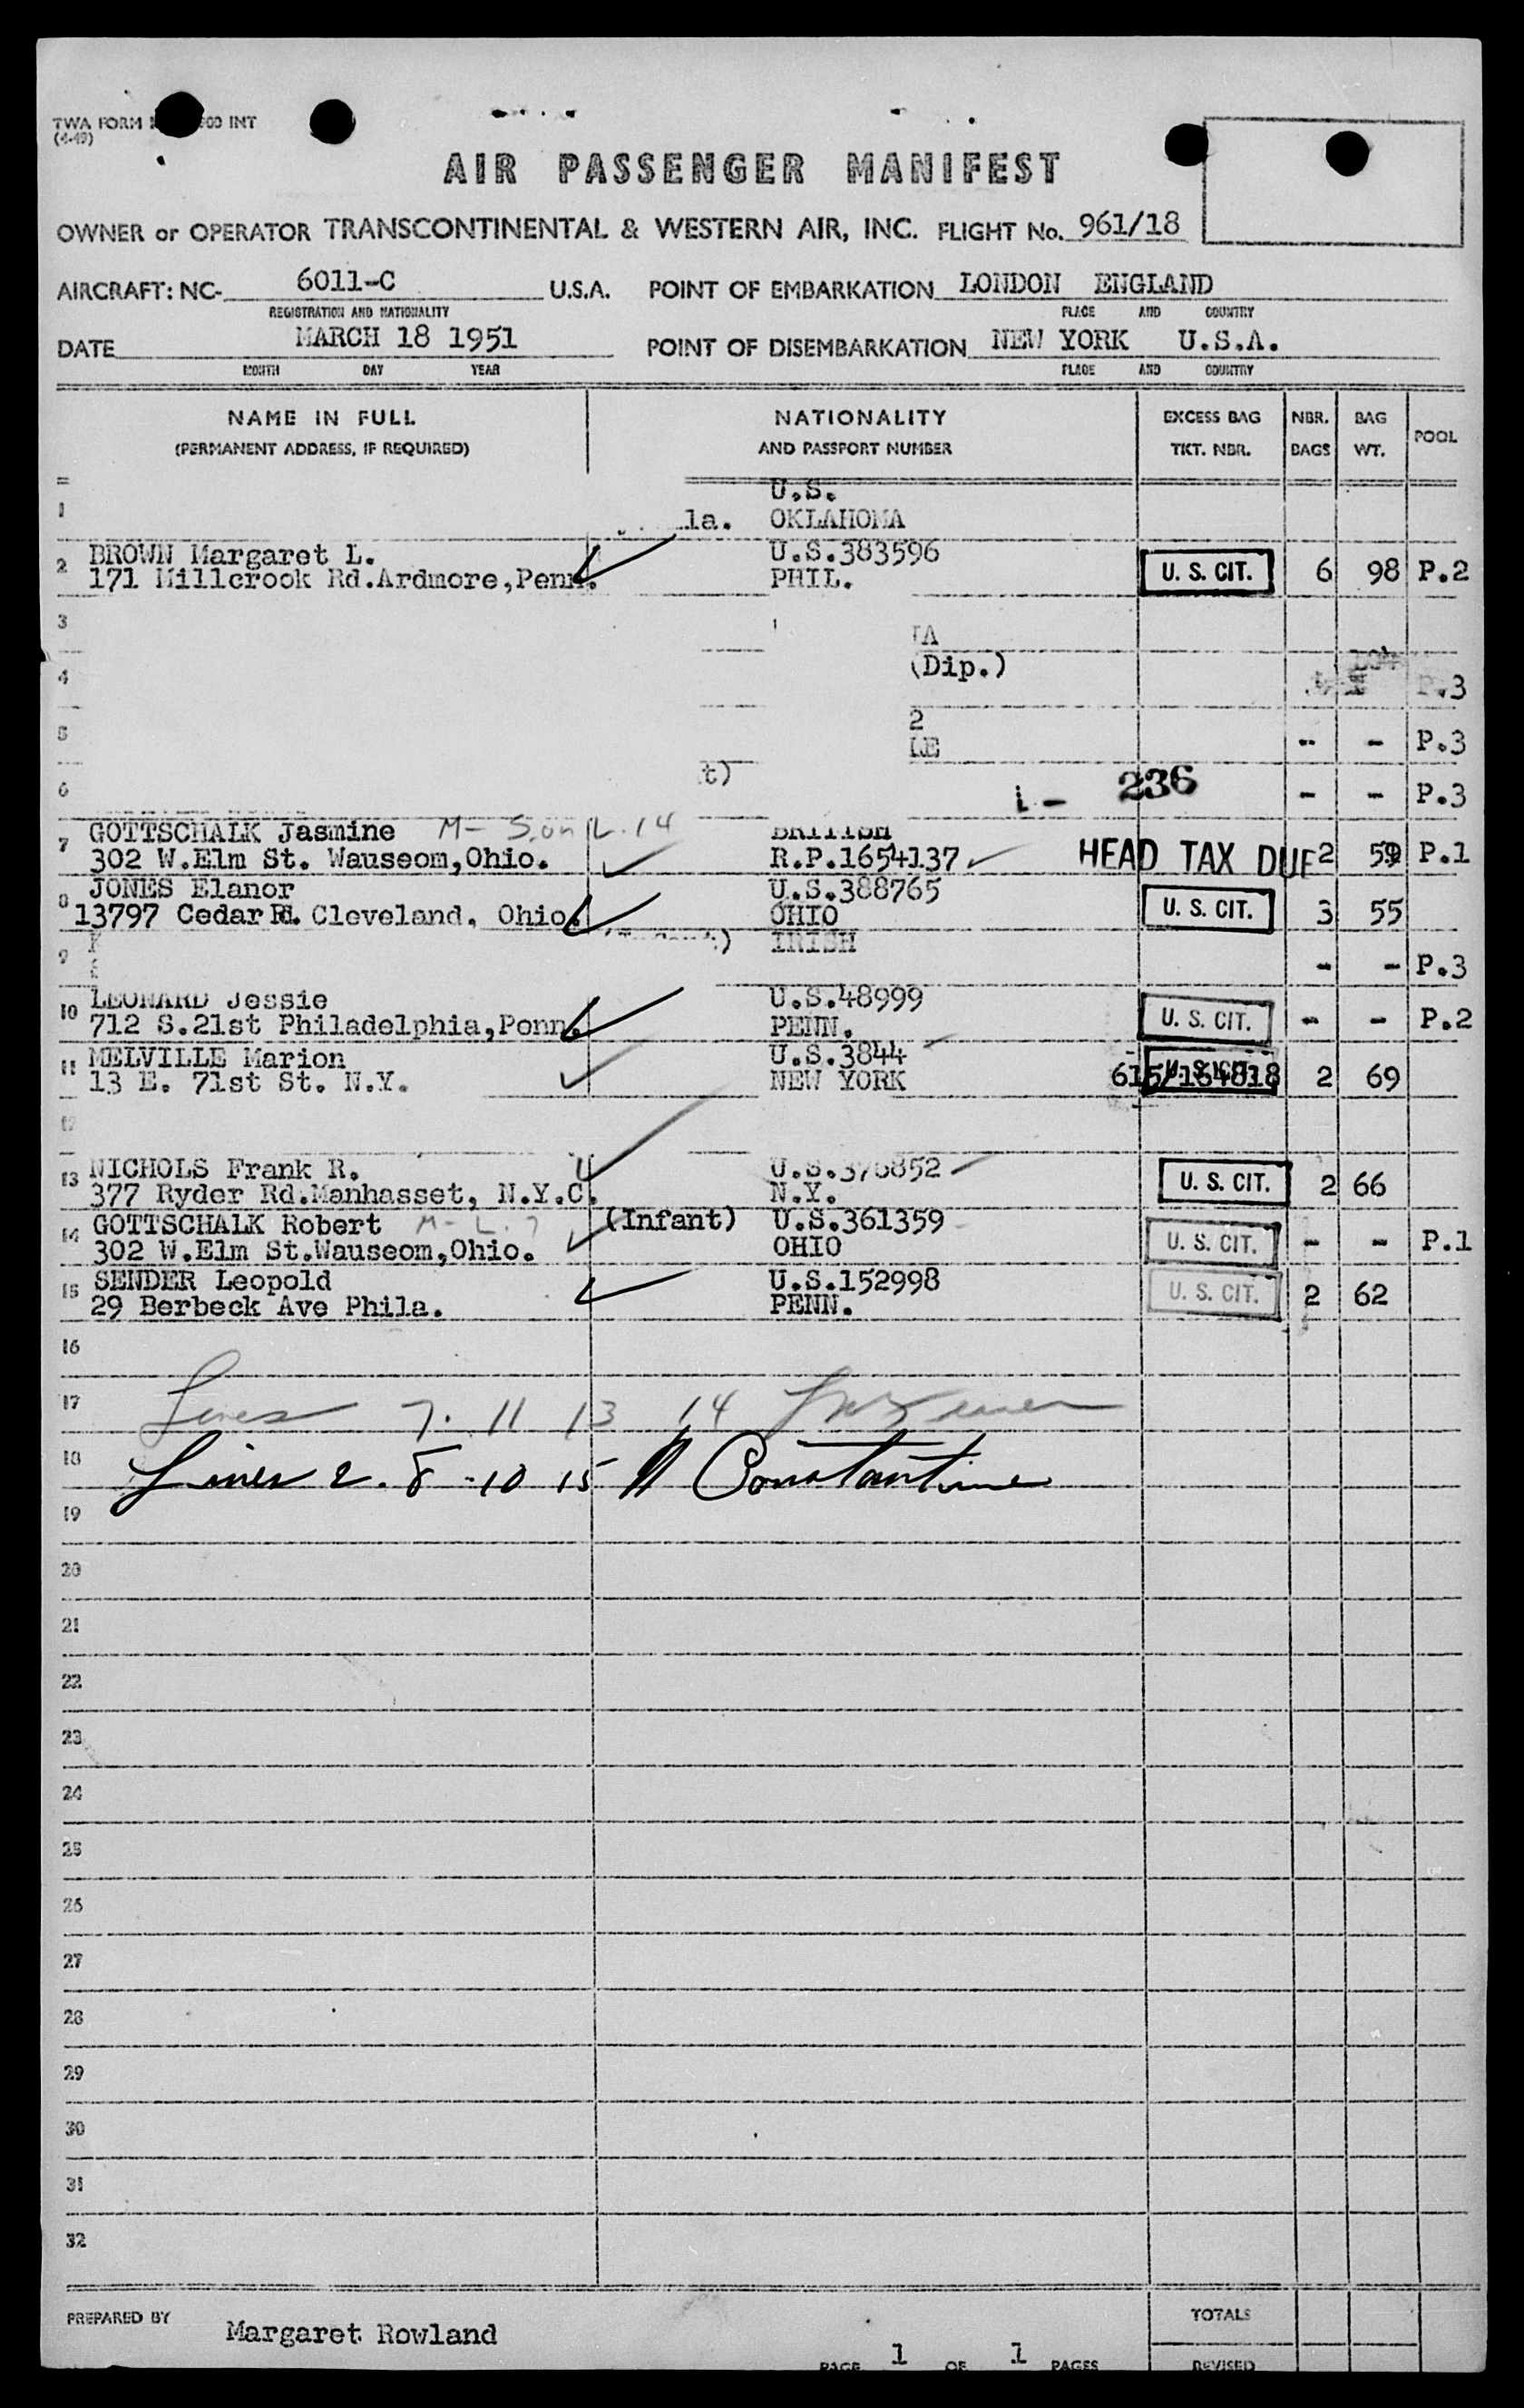 TWA FORM 300 INT
(4-49)
AIR PASSENGER MANIFEST
OWNER or OPERATOR TRANSCONTINENTAL & WESTERN AIR, INC. FLIGHT No. 961/18
AIRCRAFT: NC- 6011-C U.S.A. POINT OF EMBARKATION LONDON ENGLAND
REGISTRATION AND NATIONALITY PLACE AND COUNTRY
DATE MARCH 18 1951 POINT OF DISEMBARKATION NEW YORK U.S.A.
MONTH DAY YEAR PLACE AND COUNTRY
NAME IN FULL NATIONALITY EXCESS BAG NBR. BAG POOL
(PERMANENT ADDRESS, IF REQUIRED) AND PASSPORT NUMBER TKT. NBR. BAGS WT.
U.S.
1 la. OKLAHOMA
2 BROWN Margaret L. U.S.383596
171 Millcrook Rd.Ardmore,Penn. PHIL. U. S. CIT. 6 98 P.2
3 TA
4 (Dip.) P.3
5 2
LE - - P.3
6 t) - - P.3
i - 236
7 GOTTSCHALK Jasmine M- Son L.14 BRITISH
302 W.Elm St. Wauseom,Ohio. R.P.1654137 HEAD TAX DUE 2 59 P.1
8 JONES Elanor U.S.388765
13797 Cedar Rd. Cleveland, Ohio. OHIO U. S. CIT. 3 55
9 IRISH
- - P.3
10 LEONARD Jessie U.S.48999
712 S.21st Philadelphia,Penn. PENN. U. S. CIT. - - P.2
11 MELVILLE Marion U.S.3844
13 E. 71st St. N.Y. NEW YORK 615/164818 U. S. CIT. 2 69
12
13 NICHOLS Frank R. U.S.376852
377 Ryder Rd.Manhasset, N.Y.C. N.Y. U. S. CIT. 2 66
14 GOTTSCHALK Robert M- L. 7 (Infant) U.S.361359
302 W.Elm St.Wauseom,Ohio. OHIO U. S. CIT. - - P.1
15 SENDER Leopold U.S.152998
29 Berbeck Ave Phila. PENN. U. S. CIT. 2 62
16
17 Lines 7. 11 13 14
18 Lines 2. 8 - 10 15 Constantine
19
20
21
22
23
24
25
26
27
28
29
30
31
32
PREPARED BY Margaret Rowland TOTALS
PAGE 1 OF 1 PAGES REVISED